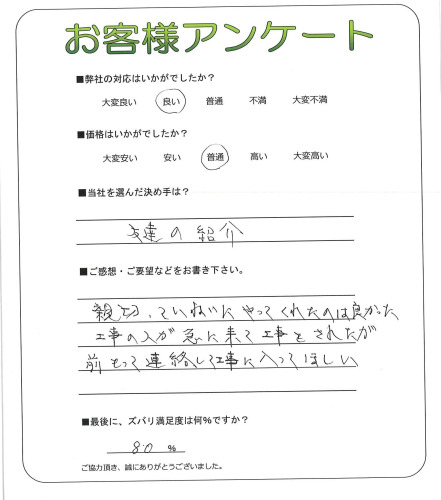 お客様アンケート
■弊社の対応はいかがでしたか？
大変良い 良い 普通 不満 大変不満
■価格はいかがでしたか？
大変安い 安い 普通 高い 大変高い
■当社を選んだ決め手は？
友達の紹介
■ご感想・ご要望などをお書き下さい。
親切、ていねいにやってくれたのは良かった
工事の人が急に来て工事をされたが
前もって連絡して工事に入ってほしい
■最後に、ズバリ満足度は何%ですか？
80 %
ご協力頂き、誠にありがとうございました。